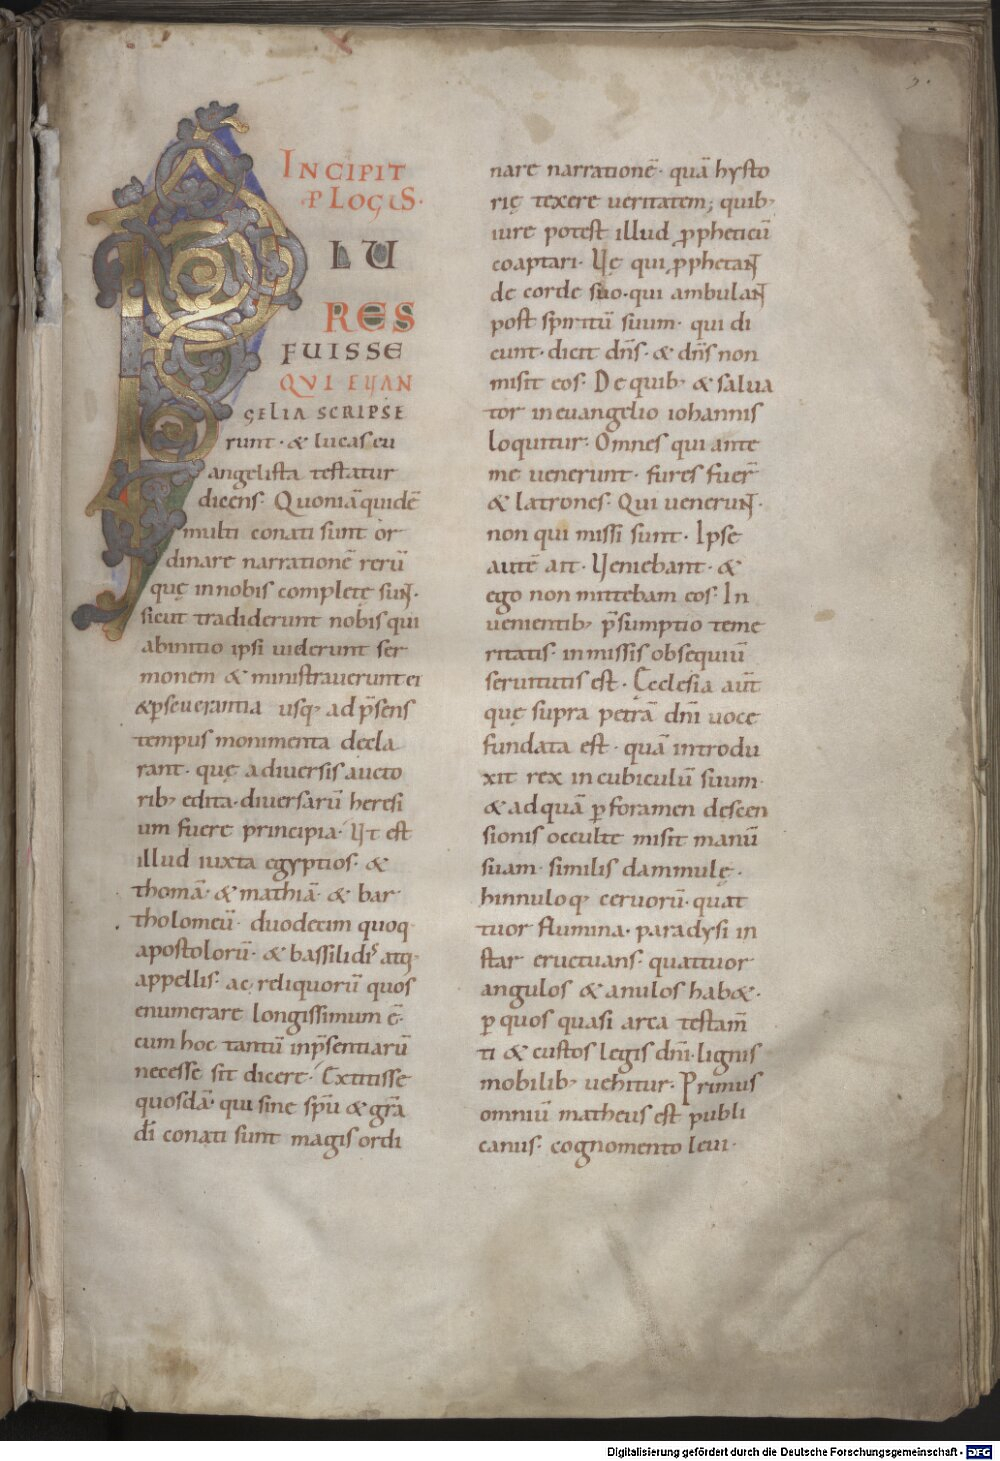 INCIPIT
PLOGUS·
P LU
RES
FUISSE
QVI EUAN
GELIA SCRIPSE
runt· & lucas eu
angelista testatur
dicens· Quoniā quidē
multi conati sunt or
dinare narrationē rerū
quę in nobis complete sunt·
sicut tradiderunt nobis qui
ab initio ipsi uiderunt ser
monem & ministrauerunt ei
& pseuerantia usq; ad p̄sens
tempus monimenta decla
rant· quę a diuersis aucto
rib; edita· diuersarū heresi
um fuere principia· Ut est
illud iuxta egyptios· &
thomā· & mathiā· & bar
tholomeū· duodecim quoq;
apostolorū· & bassilidis atq;
appellis· ac reliquorū quos
enumerare longissimum ē·
cum hoc tantū inp̄sentiarū
necesse sit dicere· Extitisse
quosdā· qui sine sp̄u & gr̄a
dī conati sunt magis ordi
nare narrationē· quā hysto
rię texere ueritatem; quib;
iure potest illud ꝓpheticū
coaptari· Uę qui ꝓphetant
de corde suo· qui ambulant
post spiritū suum· qui di
cunt· dicit dn̄s· & dn̄s non
misit eos· De quib; & salua
tor in euangelio iohannis
loquitur· Omnes qui ante
me uenerunt· fures fuer̄
& latrones· Qui uenerunt·
non qui missi sunt· Ipse
autē ait· Ueniebant· &
ego non mittebam eos· In
uenientib; p̄sumptio teme
ritatis· in missis obsequiū
seruitutis est· Ęcclesia aūt
quę supra petrā dn̄i uoce
fundata est· quā introdu
xit rex in cubiculū suum·
& ad quā ꝑ foramen descen
sionis occulte misit manū
suam· similis dammulę·
hinnuloq; ceruorū· quat
tuor flumina· paradysi in
star eructuans· quattuor
angulos & anulos hab&·
ꝑ quos quasi arca testam̄
ti & custos legis dn̄i· lignis
mobilib; uehitur· Primus
omniū matheus est publi
canus· cognomento leui·
Digitalisierung gefördert durch die Deutsche Forschungsgemeinschaft - DFG